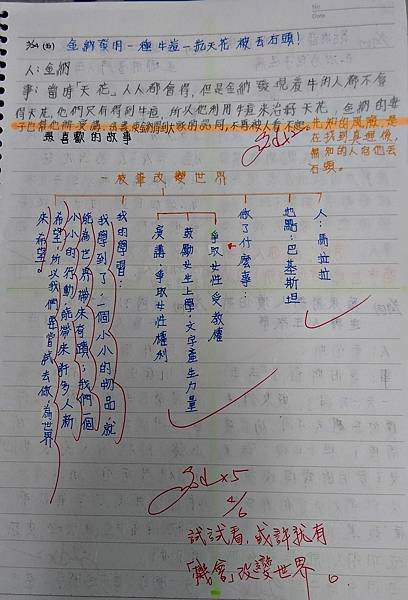 No
Date
3/24 (五) 金納發明一種牛痘一
天花被丟石頭!
人:金納
事:當時「天花」人人都會得,但是金納發現養牛的人都不會
得天花,他們只有得到牛痘,所以他利用牛痘來治好天花,金納的妻
子也幫他
演講,
金納得到大家的認同,不再被人看不起。
先知的風險,是
在找到真相後,
無知的人向他丟
石頭。
最喜歡的故事
一枝筆改變世界
人:馬拉拉
地點:巴基斯坦
做了什麼事:
爭取女性受教權
鼓勵女生上學:文字產生力量
演講:爭取女性權利
我的學習:
我學到了,一個小小的物品,就
能為世界帶來奇蹟;我們一個
小小的行動,能帶來許多人新
希望,所以我們要嘗試去做,為世界
來希望。
x5
4/6
試試看,或許就有
「機會」改變世界。